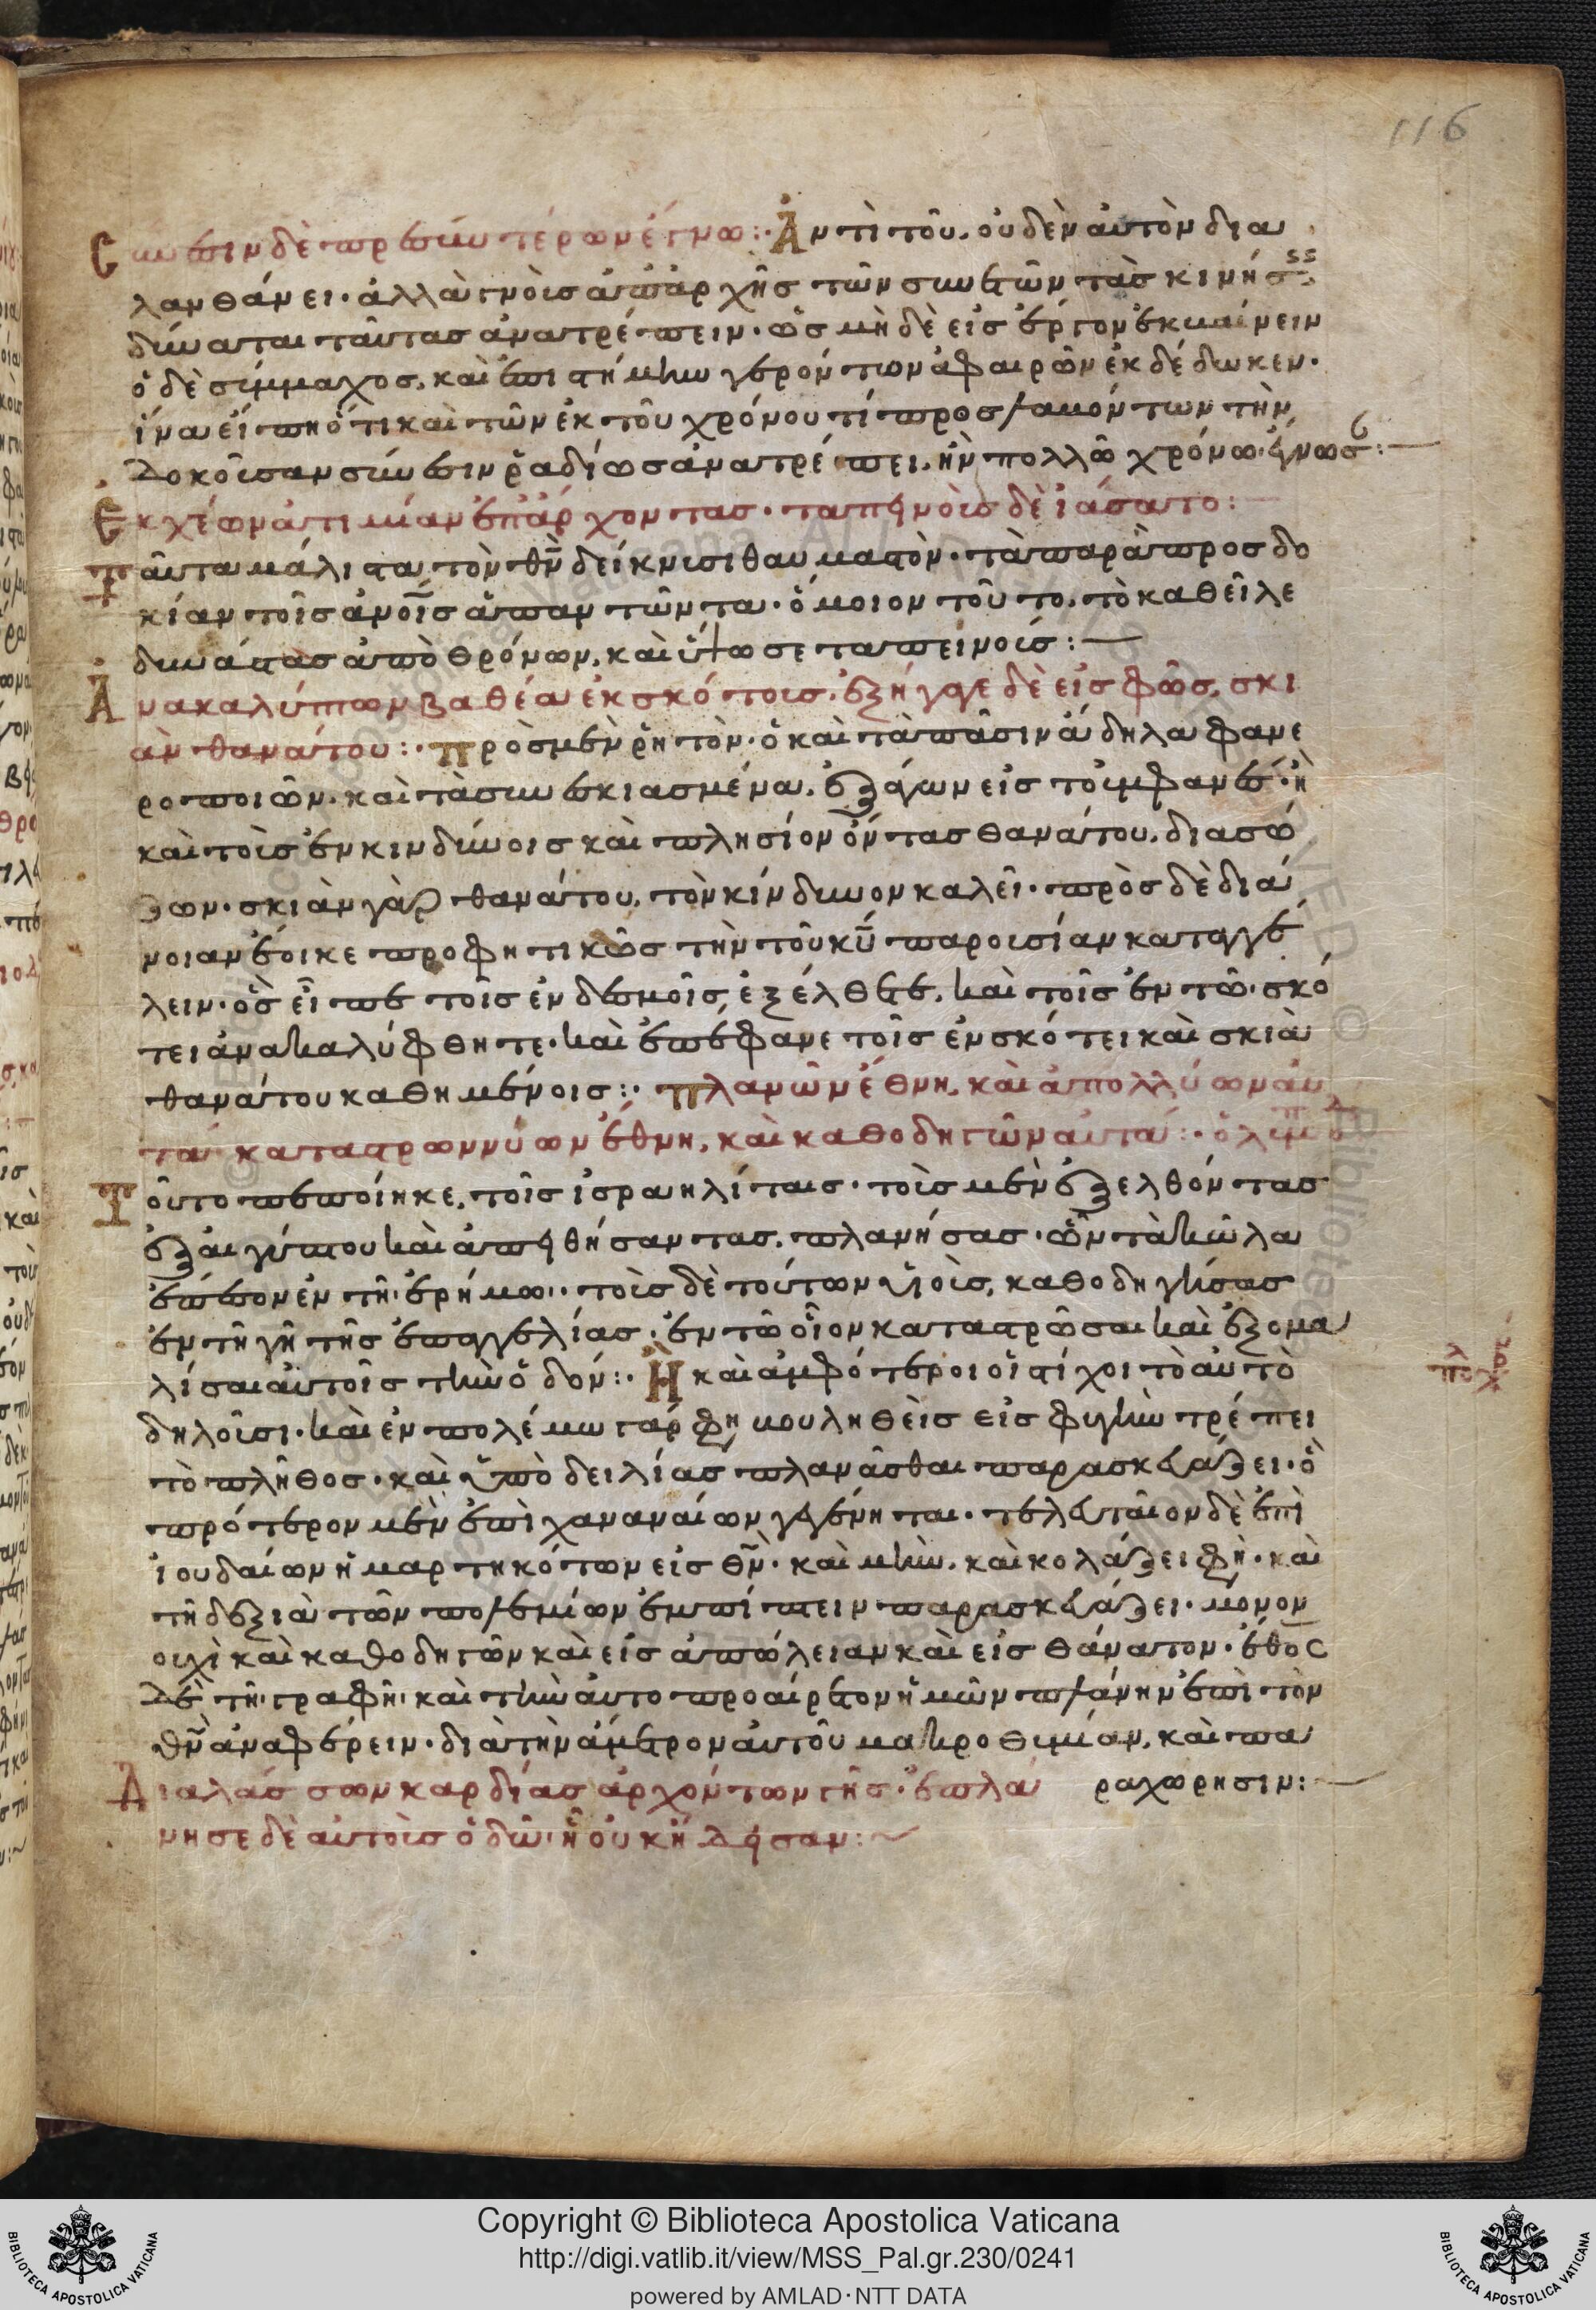 116
Σύνεσιν δὲ πρεσβυτέρων ἔγνω:· Ἀντὶ τοῦ. οὐδὲν αὐτὸν δια
λανθάνει· ἀλλὰ γνοὺς ἀπαρχῆς τῶν συνετῶν τὰς κινήσεις
δύναται ταύτας ἀνατρέπειν· ὡς μὴ δὲ εἰς ἔργον ἐκβαίνειν
ὁ δὲ σύμμαχος, καὶ ἐπιστήμην γερόντων ἀφαιρῶν ἐκδέδωκεν·
ἵνα εἴπη ὅτι καὶ τῶν ἐκ τοῦ χρόνου τί προσλαβόντων τὴν
δοκοῦσαν σύνεσιν ῥαδίως ἀνατρέπει. ἣν πολλῶ χρόνω
Ἐκχέων ἀτιμίαν ἐπ' ἄρχοντας· ταπεινοὺς δὲ ἰάσατο:
Ταῦτα μάλιστα τὸν θν̄ δείκνυσι θαυμαστὸν· τὰ παρὰ προσδο
κίαν τοῖς ἀνοῖς ἀπαντῶντα· ὅμοιον τοῦτο. τὸ καθεῖλε
δυνάστας ἀπὸ θρόνων, καὶ ὕψωσε ταπεινούς:
Ἀνακαλύπτων βαθέα ἐκ σκότους. ἐξήγαγε δὲ εἰς φῶς, σκι
ὰν θανάτου:· πρὸς μὲν ῥητὸν· ὁ καὶ τὰ πᾶσιν ἄδηλα φανε
ροποιῶν· καὶ τὰ συνεσκιασμένα. ἐξάγων εἰς τοὐμφανές· ἢ
καὶ τοὺς ἐν κινδύνοις καὶ πλησίον ὄντας θανάτου. διασώ
ζων· σκιὰν γὰρ θανάτου, τὸν κίνδυνον καλεῖ· πρὸς δὲ διά
νοιαν ἔοικε προφητικῶς τὴν τοῦ κῡ παρουσίαν καταγγέ
λειν· ὃς εἶπε τοῖς ἐν δεσμοῖς, ἐξέλθετε. καὶ τοῖς ἐν τῶ σκό
τει ἀνακαλύφθητε. καὶ ἐπέφανε τοῖς ἐν σκότει καὶ σκιὰ
θανάτου καθημένοις:· πλανῶν ἔθνη, καὶ ἀπολλύων αὐ
τά· καταστρωννύων ἔθνη, καὶ καθοδηγῶν αὐτά:·
Τοῦτο πεποίηκε, τοῖς ἰσραηλίταις· τοὺς μὲν ἐξελθόντας
ἐξ αἰγύπτου καὶ ἀπειθήσαντας. πλανήσας· ὧν τὰ κῶλα
ἔπεσον ἐν τῆ ἐρήμω·· τοὺς δὲ τούτων υἱοὺς, καθοδηγήσας
ἐν τῆ γῆ τῆς ἐπαγγελίας· ἐν τῶ οἷον καταστρῶσαι καὶ ἐξομα
λίσαι αὐτοῖς τὴν ὁδόν:· Ἢ καὶ ἀμφότεροι οἱ στίχοι τὸ αὐτὸ
δηλοῦσι· καὶ ἐν πολέμω γάρ φη βουληθεὶς εἰς φυγὴν τρέπει
τὸ πλῆθος· καὶ ὑπὸ δειλίας πλανᾶσθαι παρασκευάζει· ὃ
πρότερον μὲν ἐπὶ χαναναίων γεγένηται· τελευταῖον δὲ ἐπὶ
ἰουδαίων ἡμαρτηκότων εἰς θν̄· καὶ μὴν. καὶ κολάζει φή· καὶ
τῆ δεξιὰ τῶν πολεμίων ἐμπίπτειν παρασκευάζει. μόνον
ουχὶ καὶ καθοδηγῶν καὶ εἰς ἀπώλειαν καὶ εἰς θάνατον· ἔθος
δὲ τῆ γραφῆ. καὶ τὴν αὐτοπροαίρετον ἡμῶν πλάνην ἐπὶ τὸν
θν̄ ἀναφέρειν· διὰ τὴν ἄμετρον αὐτοῦ μακροθυμίαν, καὶ πα
ραχώρησιν:
Διαλάσσων καρδίας ἀρχόντων γῆς· ἐπλά
νησε δὲ αὐτοὺς ὁδῶ ἧ οὐκ ἤδεισαν:
Copyright © Biblioteca Apostolica Vaticana
http://digi.vatlib.it/view/MSS_Pal.gr.230/0241
powered by AMLAD·NTT DATA
BIBLIOTECA APOSTOLICA VATICANA
BIBLIOTECA APOSTOLICA VATICANA